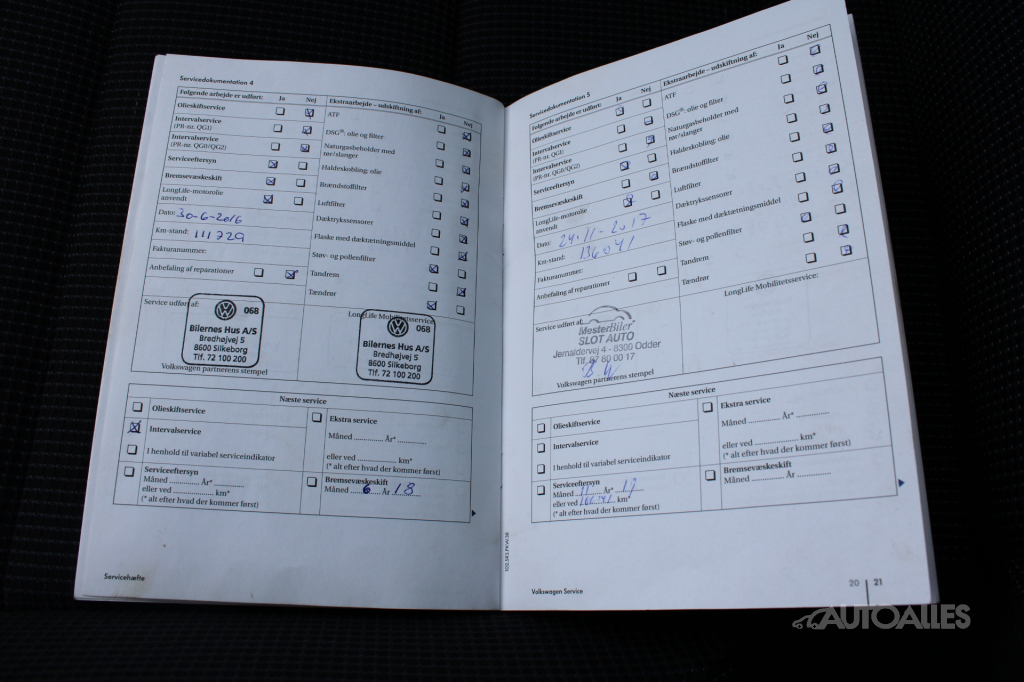 Servicedokumentation 4
Følgende arbejde er udført: Ja Nej
Olieskiftservice
Intervalservice
(PR-nr. QG1)
Intervalservice
(PR-nr. QG0/QG2)
Serviceeftersyn
Bremsevæskeskift
LongLife-motorolie
anvendt
Dato: 30-6-2016
Km-stand: 111729
Fakturanummer:
Anbefaling af reparationer
Ekstraarbejde – udskiftning af: Ja Nej
ATF
DSG®: olie og filter
Naturgasbeholder med
rør/slanger
Haldexkobling: olie
Brændstoffilter
Luftfilter
Dæktrykssensorer
Flaske med dæktætningsmiddel
Støv- og pollenfilter
Tandrem
Tændrør
Service udført af:
068
Bilernes Hus A/S
Bredhøjvej 5
8600 Silkeborg
Tlf. 72 100 200
Volkswagen partnerens stempel
LongLife Mobilitetsservice:
068
Bilernes Hus A/S
Bredhøjvej 5
8600 Silkeborg
Tlf. 72 100 200
Næste service
Olieskiftservice
Intervalservice
I henhold til variabel serviceindikator
Serviceeftersyn
Måned ............... År* ...............
eller ved ............... km*
(* alt efter hvad der kommer først)
Ekstra service
Måned ............... År* ...............
eller ved ............... km*
(* alt efter hvad der kommer først)
Bremsevæskeskift
Måned 6 År 18
Servicehæfte
102.5R5.PKW.38
Servicedokumentation 5
Følgende arbejde er udført: Ja Nej
Olieskiftservice
Intervalservice
(PR-nr. QG1)
Intervalservice
(PR-nr. QG0/QG2)
Serviceeftersyn
Bremsevæskeskift
LongLife-motorolie
anvendt
Dato: 24-11-2017
Km-stand: 136041
Fakturanummer:
Anbefaling af reparationer
Ekstraarbejde – udskiftning af: Ja Nej
ATF
DSG®: olie og filter
Naturgasbeholder med
rør/slanger
Haldexkobling: olie
Brændstoffilter
Luftfilter
Dæktrykssensorer
Flaske med dæktætningsmiddel
Støv- og pollenfilter
Tandrem
Tændrør
Service udført af:
MesterBiler
SLOT AUTO
Jernaldervej 4 - 8300 Odder
Tlf. 87 80 00 17
Volkswagen partnerens stempel
LongLife Mobilitetsservice:
Næste service
Olieskiftservice
Intervalservice
I henhold til variabel serviceindikator
Serviceeftersyn
Måned 11 År* 19
eller ved km*
(* alt efter hvad der kommer først)
Ekstra service
Måned ............... År* ...............
eller ved ............... km*
(* alt efter hvad der kommer først)
Bremsevæskeskift
Måned ............... År ...............
Volkswagen Service
20 | 21
AUTOALLES